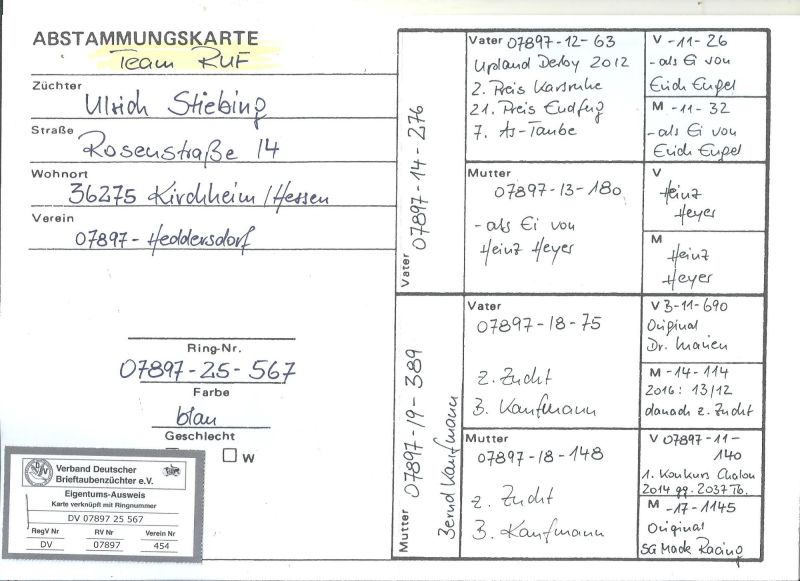 ABSTAMMUNGSKARTE
Team RUF
Züchter
Ulrich Stiebing
Straße
Rosenstraße 14
Wohnort
36275 Kirchheim/Hessen
Verein
07897-Heddersdorf
Ring-Nr.
07897-25-567
Farbe
blau
Geschlecht
W
Verband Deutscher
Brieftaubenzüchter e.V.
Eigentums-Ausweis
Karte verknüpft mit Ringnummer
DV 07897 25 567
RegV Nr RV Nr Verein Nr
DV 07897 454
Vater 07897-14-276
Vater 07897-12-63
Upland Derby 2012
2. Preis Karsruhe
21. Preis Endflug
7. As-Taube
V -11-26
- als Ei von
Erich Engel
M -11-32
- als Ei von
Erich Engel
Mutter
07897-13-180
- als Ei von
Heinz Heyer
V
Heinz
Heyer
M
Heinz
Heyer
Mutter 07897-19-389
Bernd Kaufmann
Vater
07897-18-75
z. Zucht
B. Kaufmann
V B-11-690
Original
Dr. Marien
M -14-114
2016: 13/12
danach z. Zucht
Mutter
07897-18-148
z. Zucht
B. Kaufmann
V 07897-11-
140
1. Konkurs Chalon
2014 gg. 2037 Tb.
M -17-1145
Original
SG Mack Racing